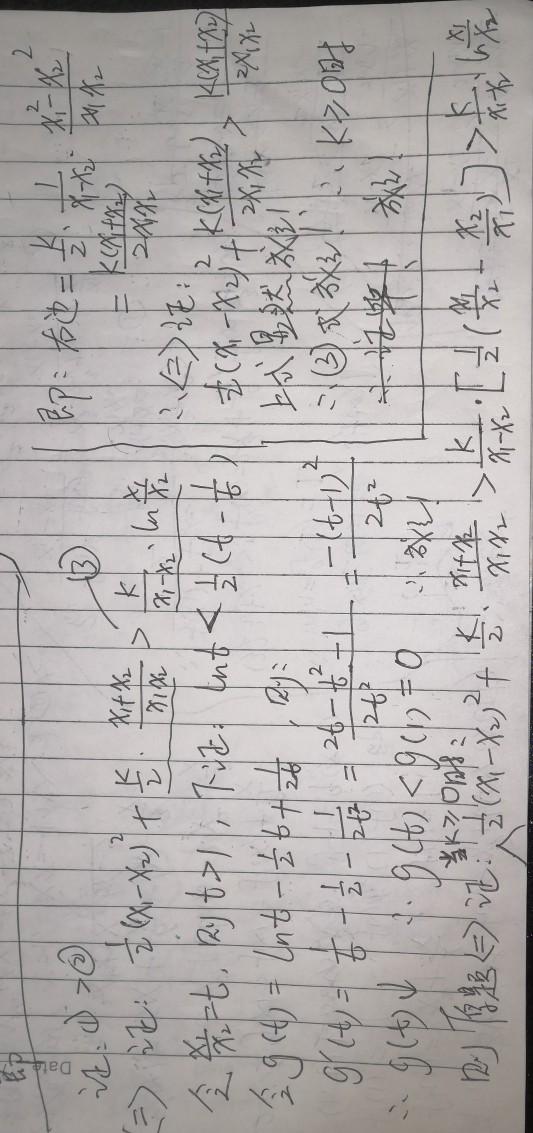 证: ① > ②
(=) 证: 1/2 (x₁-x₂)² + k/2 · (x₁+x₂)/(x₁x₂) > k/(x₁-x₂) · ln x₁/x₂ ③
令 x₁/x₂ = t, 则 t>1, 下证: ln t < 1/2 (t - 1/t)
令 g(t) = ln t - 1/2 t + 1/2t, 则:
g'(t) = 1/t - 1/2 - 1/2t² = (2t - t² - 1)/2t² = -(t-1)²/2t²
∴ g(t)↓ ∴ g(t) < g(1) = 0 ∴ 成立!
当k≥0时:
则 原题 <=> 证: 1/2 (x₁-x₂)² + k/2 · (x₁+x₂)/(x₁x₂) > k/(x₁-x₂) · [1/2 (x₁/x₂ - x₂/x₁)] > k/(x₁-x₂) · ln x₁/x₂
即: 右边 = k/2 · 1/(x₁-x₂) · (x₁²-x₂²)/(x₁x₂)
= k(x₁+x₂)/(2x₁x₂)
∴ <=> 证:
1/2 (x₁-x₂)² + k(x₁+x₂)/(2x₁x₂) > k(x₁+x₂)/(2x₁x₂)
上式显然成立!
∴ ③式成立! ∴ k≥0时
成立!
Date